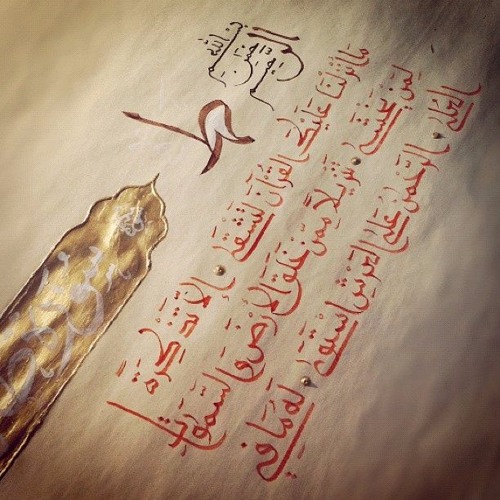 بسم الله الرحمن الرحيم
طه
مَا أَنْزَلْنَا عَلَيْكَ الْقُرْآنَ لِتَشْقَى إِلَّا تَذْكِرَةً
لِمَنْ يَخْشَى تَنْزِيلًا مِمَّنْ خَلَقَ الْأَرْضَ وَالسَّمَوَاتِ
الْعُلَى الرَّحْمَنُ عَلَى الْعَرْشِ اسْتَوَى لَهُ مَا فِي